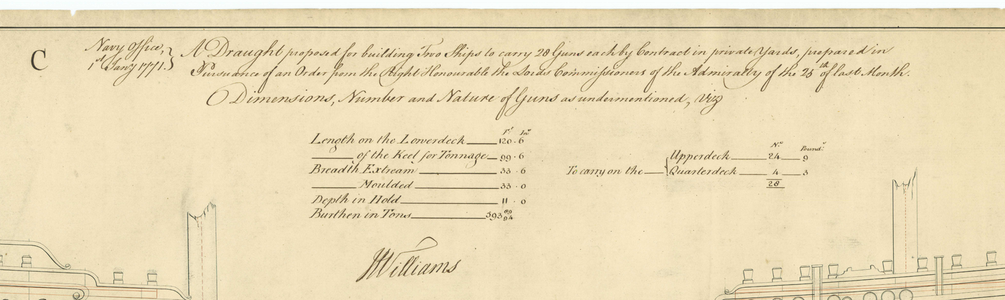 C
Navy Office,
1st Jany 1771.
A Draught proposed for building Two Ships to carry 28 Guns each by Contract in private Yards, prepared in
Pursuance of an Order from the Right Honourable the Lords Commissioners of the Admiralty of the 25th of last Month.
Dimensions, Number and Nature of Guns as undermentioned, Viz
Ft Ins
Length on the Lowerdeck 120 . 6
of the Keel for Tonnage 99 . 6
Breadth Extream 33 . 6
Moulded 33 . 0
Depth in Hold 11 . 0
Burthen in Tons 593
No Pounds
To carry on the
Upperdeck 24 9
Quarterdeck 4 3
28
JWilliams